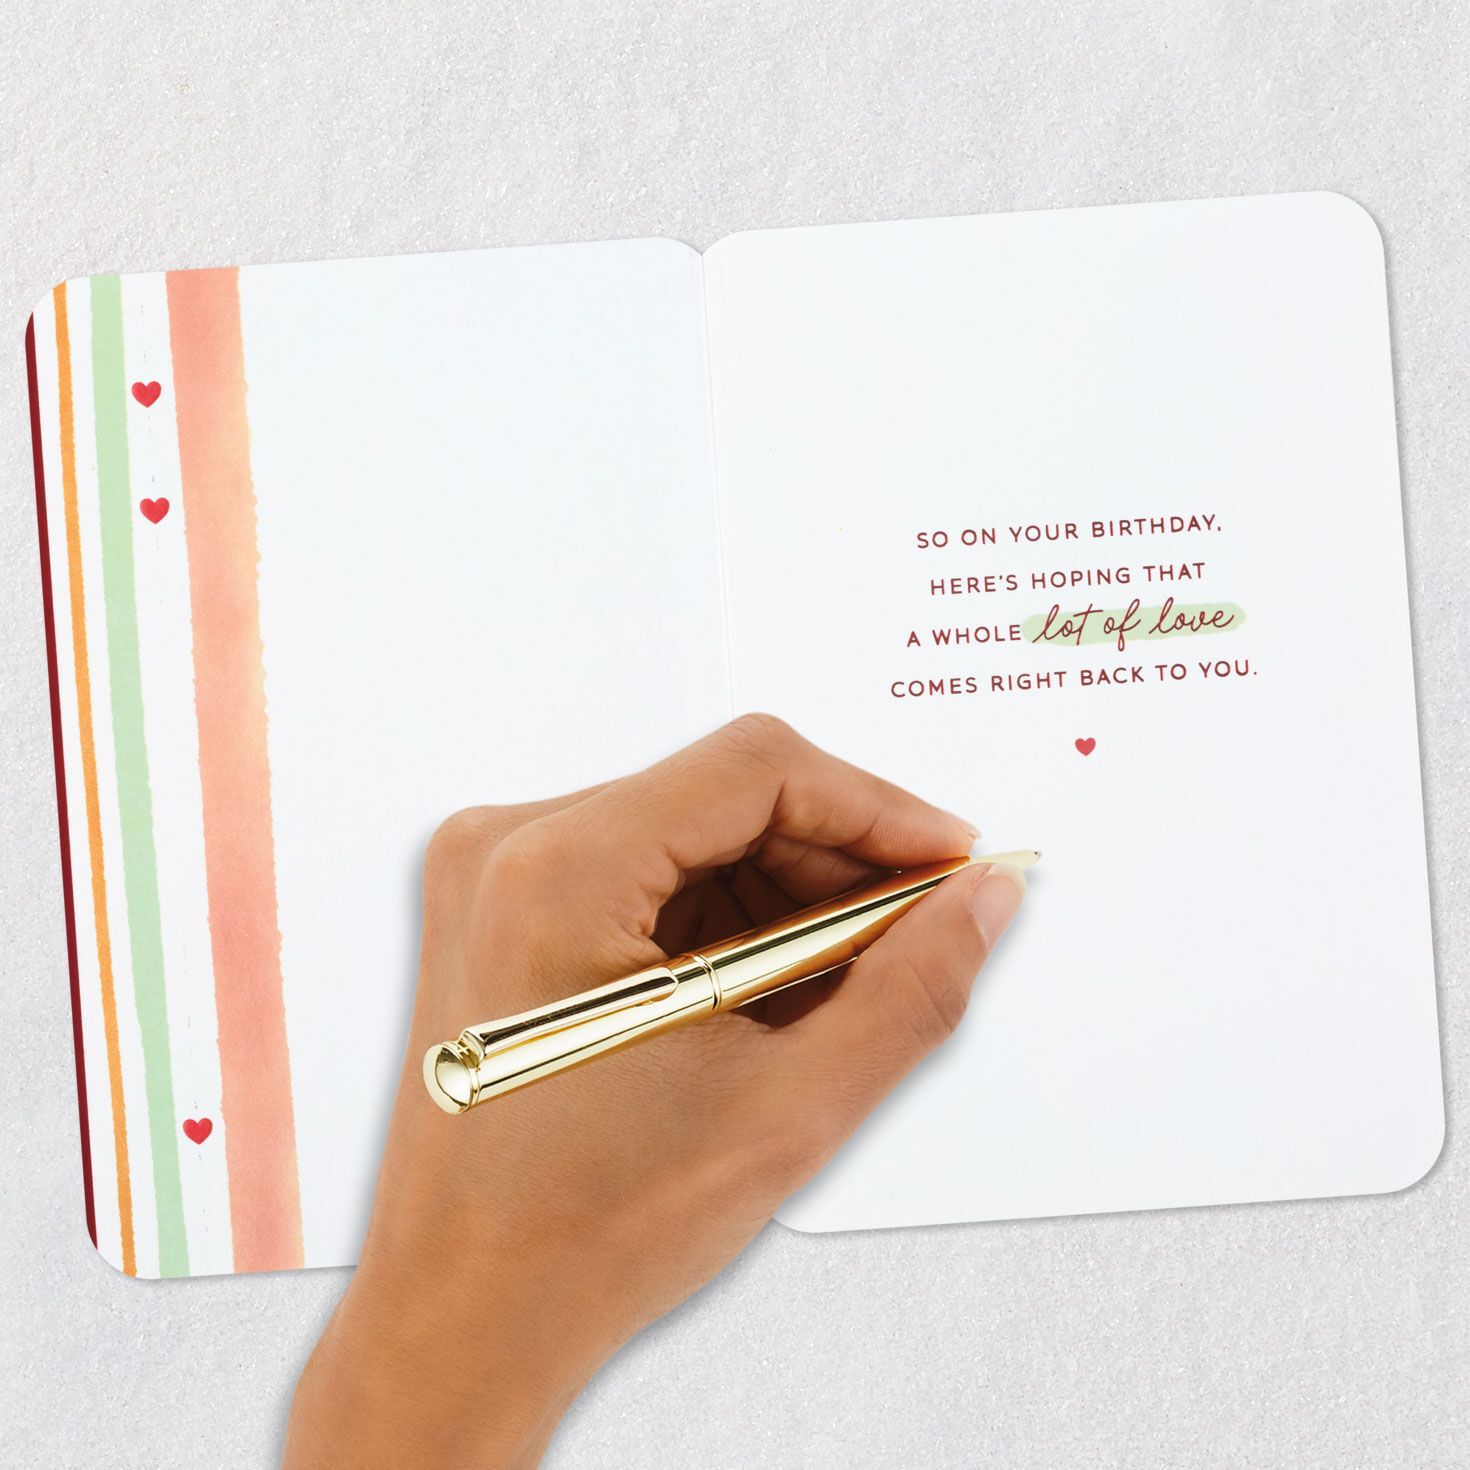 SO ON YOUR BIRTHDAY,
HERE'S HOPING THAT
A WHOLE lot of love
COMES RIGHT BACK TO YOU.